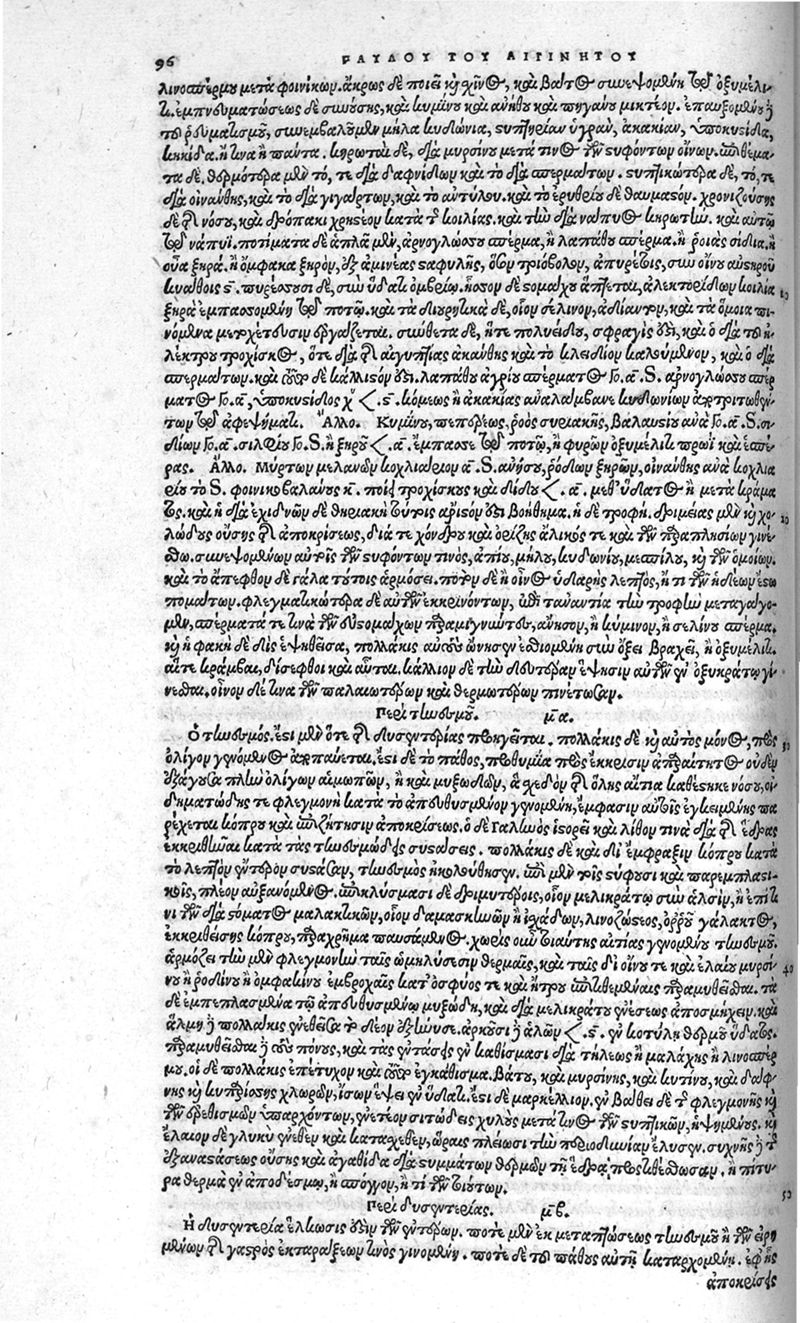 96 ΠΑΥΛΟΥ ΤΟΥ ΑΙΓΙΝΗΤΟΥ
λινοσπέρμου μετὰ φοινίκων. ἄκρως δὲ ποιεῖ καὶ χῖνος, καὶ βάτος συνεψομένη τῷ ὀξυμέλι-
τι. ἐμπνευματώσεως δὲ συνούσης, καὶ κυμίνου καὶ ἀνήθου καὶ πηγάνου μικτέον. ἐπαυξομένου δὲ
τοῦ ῥευματισμοῦ, συνεμβαλοῦμεν μῆλα κυδώνια, στυπτηρίαν ὑγρὰν, ἀκακίαν, ὑποκυστίδα,
κηκίδα. ἤ τινα ἢ πάντα. κηρωταὶ δὲ, διὰ μυρσίνου μετά τινος τῶν στυφόντων οἴνων. ἐπιθέμα-
τα δὲ, θερμότερα μὲν τό, τε διὰ δαφνίδων καὶ τὸ διὰ σπερμάτων. στυπτικώτερα δὲ, τό, τε
διὰ οἰνάνθης, καὶ τὸ διὰ γιγάρτων, καὶ τὸ αὐτύλου. καὶ τὸ ἐρυθρὸν δὲ θαυμαστόν. χρονιζούσης
δὲ τῆς νόσου, καὶ δρώπακι χρηστέον κατὰ τῆς κοιλίας. καὶ τὴν διὰ νάπυος κηρωτὴν. καὶ αὐτῷ
τῷ νάπυϊ. ποτίματα δὲ ἁπλᾶ μὲν, ἀρνογλώσσου σπέρμα, ἢ λαπάθου σπέρμα. ἢ ῥοιᾶς σίδια. ἢ
οὖα ξηρά. ἢ ὄμφακα ξηρὸν, ἐξ ἀμινέας σταφυλῆς, ὅσον τριόβολον, ἀπυρέτοις, σὺν οἴνου αὐστηροῦ
κυάθοις ϛ. πυρέσσουσι δὲ, σὺν ὕδατι ὀμβρίῳ. ἧσσον δὲ στομάχου ἅπτεται, ἀλεκτορίδων κοιλία 10
ξηρὰ ἐμπασσομένη τῷ ποτῷ. καὶ τὰ διουρητικὰ δὲ, οἷον σέλινον, ἀδίαντον, καὶ τὰ ὅμοια πι-
νόμενα μετοχέτευσιν ἐργάζεται. σύνθετα δὲ, ἥτε πολυείδου, σφραγίς ἐστι, καὶ ὁ διὰ τοῦ ἠ-
λέκτρου τροχίσκος, ὅτε διὰ τῆς αἰγυπτίας ἀκάνθης καὶ τὸ κλειδίον καλούμενον, καὶ ὁ διὰ
σπερμάτων. καὶ τοῦτο δὲ κάλλιστόν ἐστι. λαπάθου ἀγρίου σπέρματος
των τῷ ἀφεψήματι. Ἄλλο. Κυμίνου, πεπέρεως, ῥοὸς συριακῆς, βαλαυστίου ἀνὰ
ρας. Ἄλλο. Μύρτων μελανῶν κοχλιάριον α. S. ἀνήσου, ῥόδων ξηρῶν, οἰνάνθης ἀνὰ κοχλια
ρίου τὸ S. φοινικοβαλάνους κ. ποίει τροχίσκους καὶ δίδου α. μεθ' ὕδατος ἢ μετὰ κράμα
τος. καὶ ἡ διὰ ἐχιδνῶν δὲ θηριακὴ τούτοις ἄριστόν ἐστι βοήθημα. ἡ δὲ τροφὴ. δριμείας μὲν καὶ χο- 20
λώδους οὔσης τῆς ἀποκρίσεως, διά τε χόνδρου καὶ ὀρύζης ἅλικός τε καὶ τῶν παραπλησίων γινέ-
σθω. συνεψομένων αὐτοῖς τῶν στυφόντων τινὸς, ἀπίου, μήλου, κυδωνίου, μεσπίλου, καὶ τῶν ὁμοίων.
καὶ τὸ ἄπεφθον δὲ γάλα τούτοις ἁρμόσει. ποτὸν δὲ ἢ οἶνος ὑδαρὴς λεπτὸς, ἤ τι τῶν ἡδέων ἔστω
πομάτων. φλεγματικώτερα δὲ αὐτῶν ἐκκρινόντων, ἐπὶ τἀναντία τὴν τροφὴν μετάγοι-
μεν, σπέρματά τε τινὰ τῶν εὐστομάχων παραμιγνύντες, ἄνησον, ἢ κύμινον, ἢ σελίνου σπέρμα.
καὶ ἡ φακῆ δὲ δὶς ἑψηθεῖσα, πολλάκις αὐτοὺς ὤνησεν ἐσθιομένη σὺν ὄξει βραχεῖ, ἢ ὀξυμέλιτι.
αἵτε κράμβαι, δίσεφθοι καὶ αὗται. κάλλιον δὲ τὴν δευτέραν ἕψησιν αὐτῶν ἐν ὀξυκράτῳ γί-
νεσθαι. οἶνον δέ τινα τῶν παλαιοτέρων καὶ θερμοτέρων πινέτωσαν.
Περὶ τεινεσμοῦ. μα.
Ὁ τεινεσμός. ἔστι μὲν ὅτε τῆς δυσεντερίας προηγεῖται. πολλάκις δὲ καὶ αὐτὸς μόνος, πρὸς 30
ὀλίγον γενόμενος ἀποπαύεται. ἔστι δὲ τὸ πάθος, προθυμία πρὸς ἔκκρισιν ἀπαραίτητος οὐδὲν
ἐξάγουσα πλὴν ὀλίγων αἱματωδῶν, ἢ καὶ μυξωδῶν, ἃ σχεδὸν τῆς ὅλης αἴτια καθέστηκε νόσου, οἰ-
δηματώδης τε φλεγμονὴ κατὰ τὸ ἀπευθυσμένον γενομένη, ἔμφασιν αὐτοῖς ἐγκειμένης πα
ρέχεται κόπρου καὶ ἐπιζήτησιν ἀποκρίσεως. ὁ δὲ Γαληνὸς ἱστορεῖ καὶ λίθον τινὰ διὰ τῆς ἕδρας
ἐκκριθῆναι κατὰ τὰς τεινεσμώδεις συστάσεις. πολλάκις δὲ καὶ δι' ἔμφραξιν κόπρου κατὰ
τὸ λεπτὸν ἔντερον συστᾶσαν, τεινεσμὸς ἠκολούθησεν. ἐπὶ μὲν τοῖς στύφουσι καὶ παρεμπλαστι-
κοῖς, πλέον αὐξανόμενος. ἐπικλύσμασι δὲ δριμυτέροις, οἷον μελικράτῳ σὺν ἁλσὶν, ἢ ἐπί τι-
νι τῶν διὰ στόματος μαλακτικῶν, οἷον δαμασκηνῶν ἢ ἰσχάδων, λινοζώστεως, ὀρροῦ γάλακτος,
ἐκκριθείσης κόπρου, παραχρῆμα παυσάμενος. χωρὶς οὖν τοιαύτης αἰτίας γενομένου τεινεσμοῦ.
ἁρμόζει τὴν μὲν φλεγμονὴν ταῖς ἐπιβρέξεσιν θερμαῖς, καὶ ταῖς δι' οἴνου τε καὶ ἐλαίου μυρσί- 40
νου ἢ ῥοδίνου ἢ ὀμφακίνου ἐμβροχαῖς κατ' ὀσφύος τε καὶ ἤτρου ἐπιτιθεμέναις παραμυθεῖσθαι. τὰ
δὲ ἐμπεπλασμένα τῷ ἀπευθυσμένῳ μυξώδη, καὶ διὰ μελικράτου ἐνέσεως ἀποσμήχειν. καὶ
ἅλμη δὲ πολλάκις ἐνεθεῖσα τὸ δέον ἐξήνυσε. ἀρκοῦσι δὲ ἁλῶν ϛ. ἐν κοτύλῃ θερμοῦ ὕδατος.
παραμυθεῖσθαι δὲ τοὺς πόνους, καὶ τὰς ἐντάσεις ἐν καθίσμασι διὰ τήλεως ἢ μαλάχης ἢ λινοσπέρ
μου. οἳ δὲ πολλάκις ἐπέτυχον καὶ τοῦτο ἐγκάθισμα. βάτου, καὶ μυρσίνης, καὶ κυτίνου, καὶ δάφ-
νης καὶ κυπρίσσης χλωρῶν, ἴσων ἕψει ἐν ὕδατι. ἔστι δὲ μαρκέλλιον. ἐν βάθει δὲ τῆς φλεγμονῆς καὶ
τῶν ἐρεθισμῶν ὑπαρχόντων, ἐνετέον σιτώδεις χυλοὺς μετά τινος τῶν στυπτικῶν, ἡψημένους. καὶ
ἔλαιον δὲ γλυκὺ ἐνεθὲν καὶ κατασχεθὲν, ὥραις πλείοσι τὴν περιοδυνίαν ἔλυσεν. συχνῆς δὲ τῆς
ἐξαναστάσεως οὔσης καὶ ἀγαθίδα διὰ στυμμάτων θερμῶν τῇ ἕδρᾳ προστιθέσθωσαν. ἢ πίτυ-
ρα θερμὰ ἐν ἀποδέσμῳ, ἢ σπόγγον, ἤ τι τῶν τοιούτων.
Περὶ δυσεντερίας. μβ. 50
Ἡ δυσεντερία ἕλκωσίς ἐστιν τῶν ἐντέρων. ποτὲ μὲν ἐκ μεταπτώσεως τεινεσμοῦ ἢ τῶν εἰρη
μένων τῆς γαστρὸς ἐκταράξεων τινὸς γινομένη. ποτὲ δὲ τοῦ πάθους αὐτὴ καταρχομένη. ἐφ' ἧς
ἀποκρίσεις